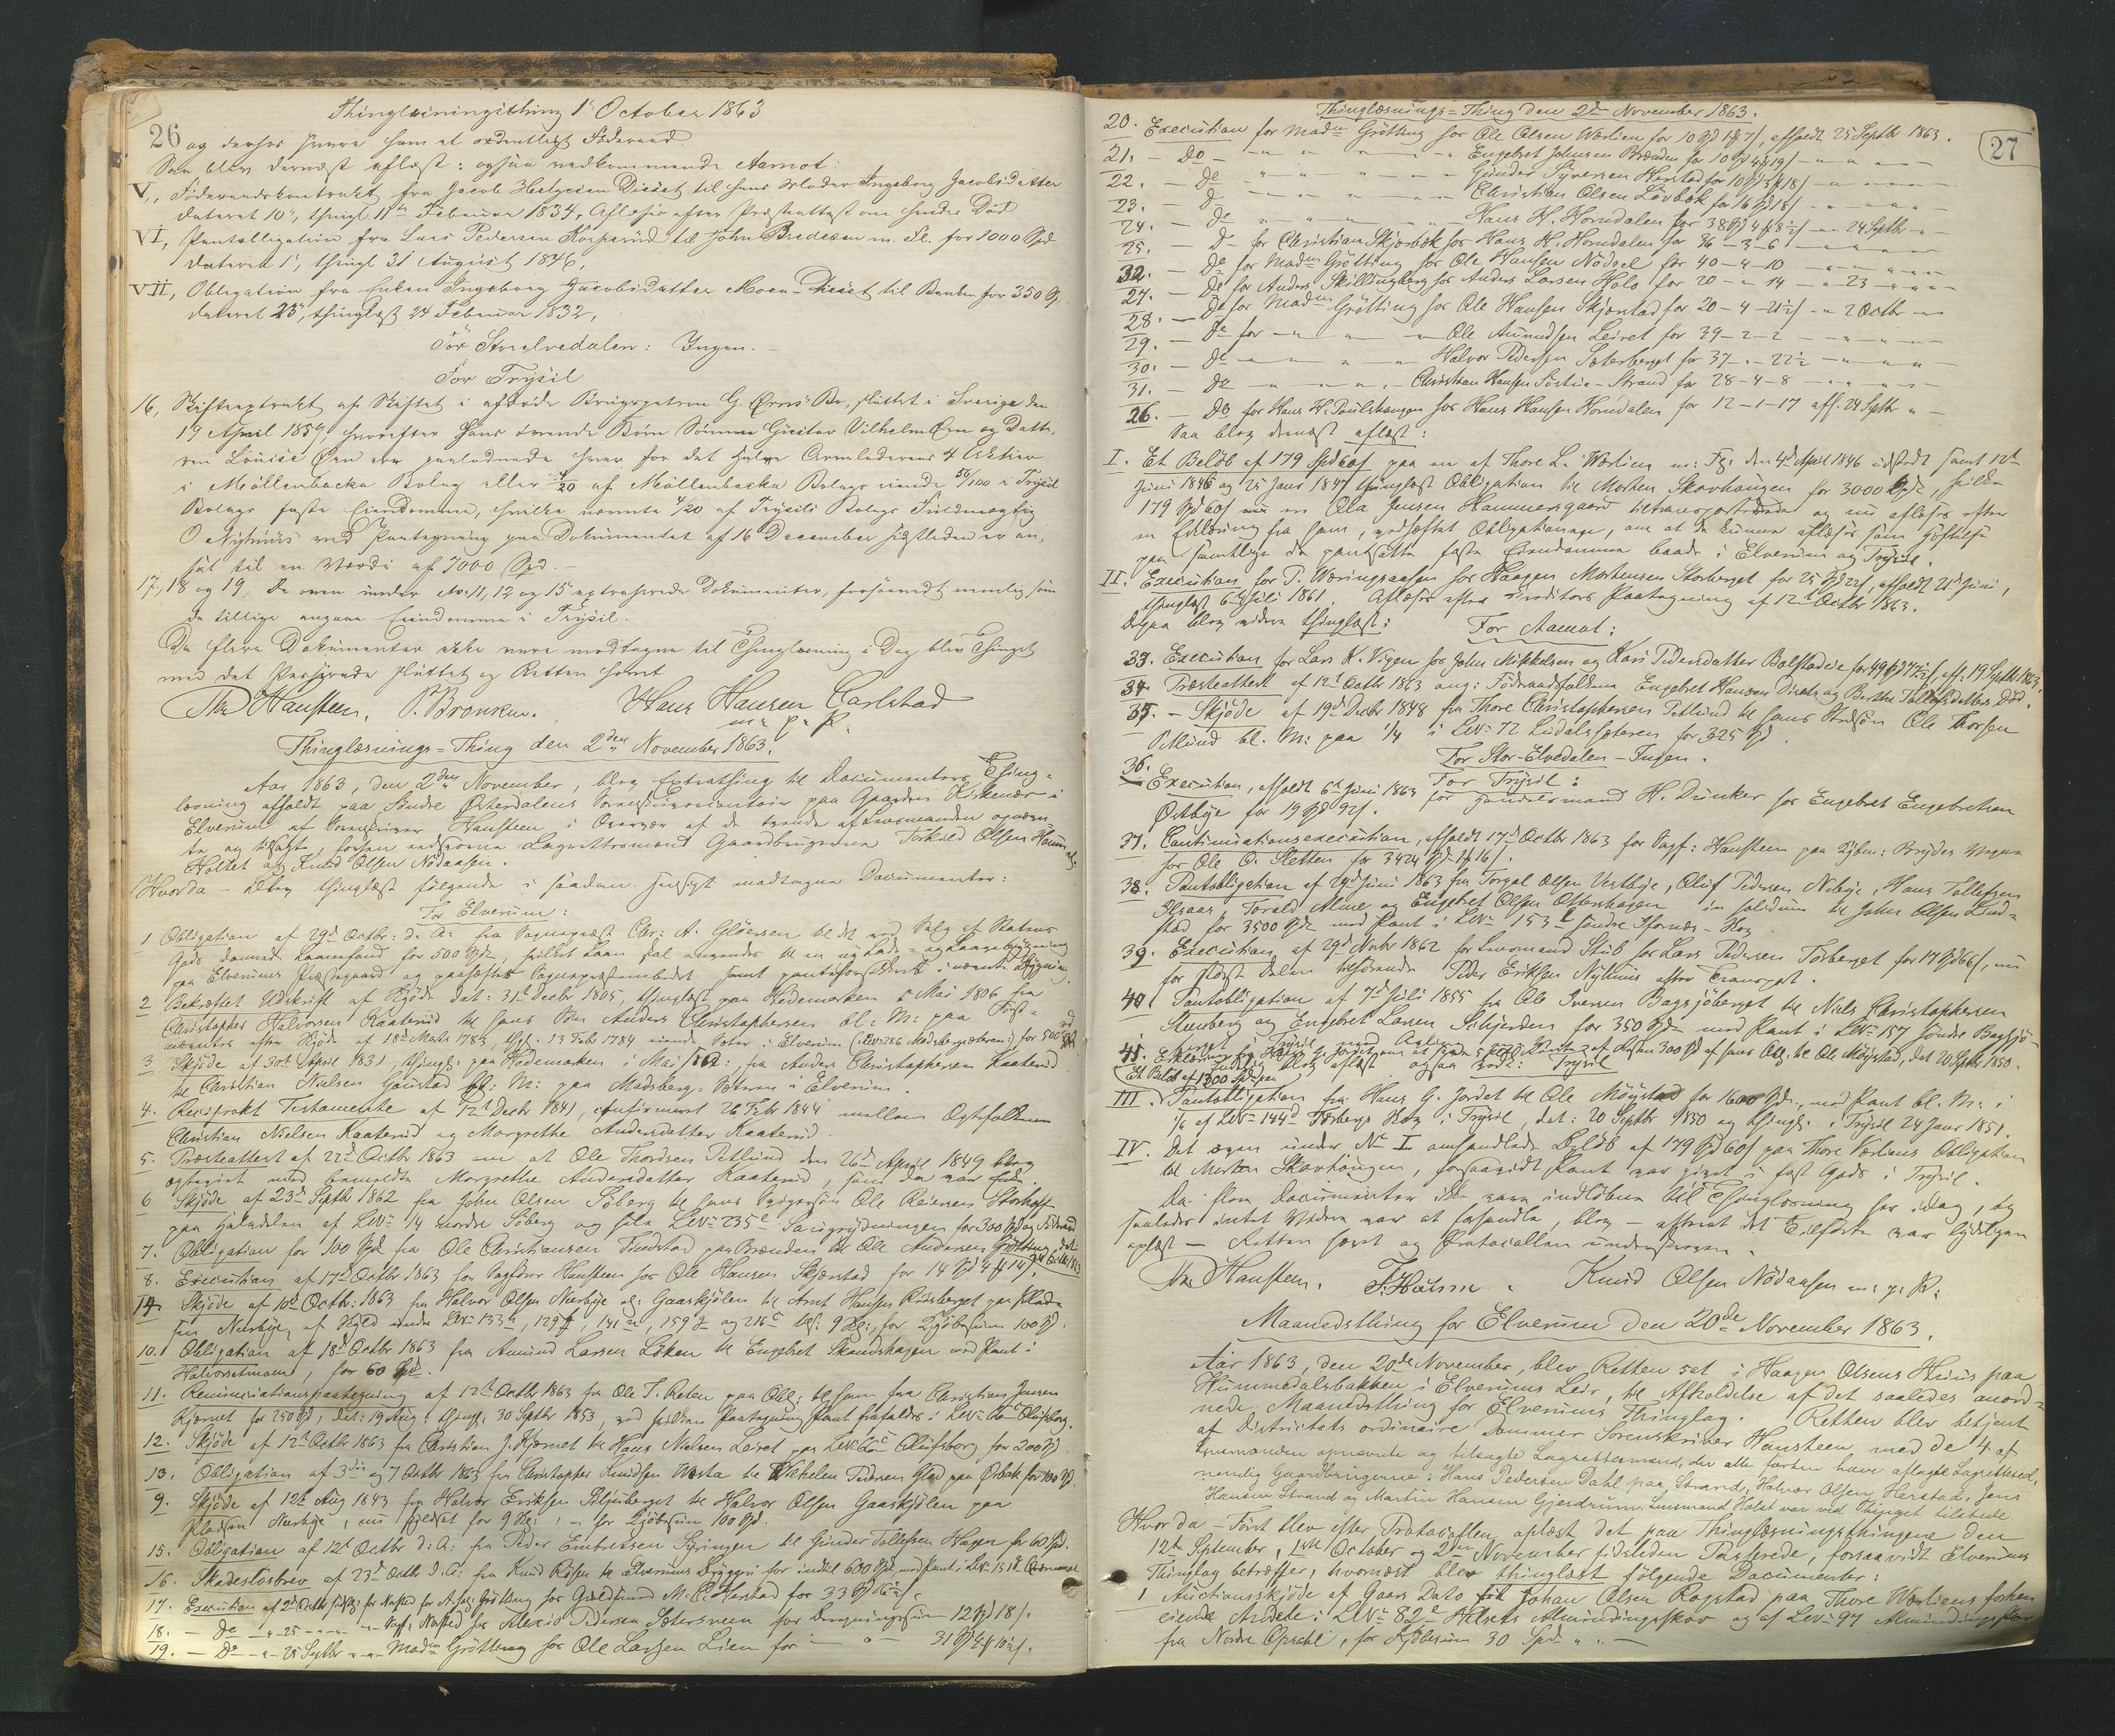 Thinglæsningsthing 1ste October 1863
26 og derhos svare ham et ordentligt Föderaad.
Saa blev dernæst aflæst: ogsaa vedkommende Aamot:
V, Föderaadskontrakt fra Jacob Helgesen Diesæt til hans Moder Ingeborg Jacobsdatter
dateret 10de, thingl 11te Februar 1834, Aflæses efter Præsteattest om hendes Död
VI, Pantobligation fra Lars Pedersen Korperud til John Bredesen m. Fl. for 1000 Spd
dateret 1ste, thingl 31 August 1846.
VII, Obligation fra Enken Ingeborg Jacobsdatter Moen-Diesæt til Banken for 350 Spd
dateret 23de, thinglæst 24 Februar 1832.
For Storelvedalen: Ingen.
For Trysil
16, Skifteextrakt af Skiftet i afdöde Brugspatron G. Örns Bo, sluttet i Sverige den
19 April 1859, hvorefter hans tvende Börn Sönnen Gustav Vilhelm Örn og Datte-
ren Louise Örn ere paalodnede hver for det halve Arveladerens 4 Aktier
i Möllenbacka Bolag eller 4/20 af Möllenbacka Bolags eiende 56/100 i Trysil
Bolags faste Eiendomme, hvilke nævnte 4/20 af Trysils Bolags Fuldmægtig
O Nyhuus ved Paategning paa Dokumentet af 16 December sidstleden er an-
sat til en Værdi af 7000 Spd.
17, 18 og 19, De oven under No 11, 13 og 15 extraherede Dokumenter, forsaavidt nemlig som
de tillige angaae Eiendomme i Trysil.
Da flere Dokumenter ikke vare modtagne til Thinglæsning i Dag blev Thinget
med det Passerede sluttet og Retten hævet
Thr Hansteen. P. Bronken. Hans Hansen Carlstad
m. p. P.
Thinglæsnings-Thing den 2den November 1863.
Aar 1863, den 2den November, blev Extrathing til Documenters Thing-
læsning afholdt paa Söndre Österdalens Sorenskrivercontoir paa Gaarden Kirkenær i
Elverum af Sorenskriver Hansteen i Overvær af de tvende af Lensmanden opnævn-
te og tilsagte, forhen edsvorne Laugrettesmænd Gaardbrugerne Torkild Olsen Hommel-
Holtet og Knud Olsen Nödaasen.
Hvorda - blev thinglæst fölgende i saadan Hensigt modtagne Documenter:
For Elverum:
1 Obligation af 29de Octbr: d: A: fra Sognepræst Chr: A. Glöersen til det ved Salg af Statens
Gods dannede Laanefond for 500 Spd, hvilket Laan skal anvendes til en ny Lade- og Laavebygning
paa Elverums Præstegaard og paahæftes Sognepræstembedet samt panteforsikkres i nævnte Bygning.
2 Bekræftet Udskrift af Skjöde dat: 31te Decbr 1805, thinglæst paa Hedemarken 5 Mai 1806 fra
Christopher Halvorsen Kaaterud til hans Sön Anders Christophersen bl: M: paa Först-
nævntes efter Skjöde af 18de Marts 1783, thgl. 13 Febr 1784 eiende Sæter i Elverum (Lnr 286 Madsbergsæteren) for 500 Rd.
3 Skjöde af 30te April 1831, thingl: paa Hedemarken i Mai s. A., fra Anders Christophersen Kaaterud
til Christian Nielsen Gaustad bl: M: paa Madsberg-Sæteren i Elverum.
4. Reciprokt Testamente af 12te Decbr 1841, confirmeret 26 Febr 1844 mellem Ægtefolkene
Christian Nielsen Kaaterud og Margrethe Andersdatter Kaaterud.
5. Præsteattest af 22de Octbr 1863 om at Ole Thordsen Petlund den 26de April 1849 blev
ægteviet med bemeldte Margrethe Andersdatter Kaaterud, som da var Enke.
6 Skjöde af 23de Septbr 1862 fra John Olsen Söberg til hans Svigersön Ole Reiersen Storhoff
paa Halvdelen af LNr 14 nordre Söberg og hele LNr 235c Saugrydningen for 300 Spd og Föderaad.
7. Obligation for 100 Spd fra Ole Christiansen Tindstad paa Brænden til Ole Andersen Grötting, dat
8. Execution af 17de Octbr 1863 for Sagförer Hansteen hos Ole Hansen Skjærstad for 14 Spd 4 # 14 s.
14. Skjöde af 10de Octbr: 1863 fra Halvor Olsen Nærbye al: Gaaskjölen til Arnt Hansen Riisberget paa Plad-
sen Nærbye, af Skyld under LNr 133a, 129, 141, 159 og 216c tils: 9 Sk:, for Kjöbesum 100 Spd.
10. Obligation af 18de Octbr 1863 fra Amund Larsen Löken til Engebret Skandshagen med Pant i
Halvorsetmoen, for 60 Spd.
11. Renunciationspaategning af 12te Octbr 1863 fra Ole T. Relen paa Obl: til ham fra Christian Jensen
Kjærnet for 250 Spd, dat: 19 Aug: thingl. 30 Septbr 1853, ved hvilken Paategning Pant frafaldes i LNr 60c Olufsborg.
12. Skjöde af 12te Octbr 1863 fra Christian J. Kjærnet til Hans Nielsen Leiret paa LNr 60c Olufsborg for 200 Spd.
13. Obligation af 3die og 7 Octbr 1863 fra Christopher Knudsen Westa til Wilhelm Pedersen Glad paa Örbek for 100 Spd.
9. Skjöde af 12te Aug 1843 fra Halvor Eriksen Bljusberget til Halvor Olsen Gaaskjölen paa
Pladsen Nærbye, nu skyldsat for 9 Sk:, for Kjöbesum 100 Spd.
15. Obligation af 12te Octbr d: A: fra Peder Embretsen Syringen til Gunder Tollefsen Hagen for 60 Spd.
16. Skadeslösbrev af 23de Octbr d. A: fra Knud Röhse til Elverums Bryggeri for indtil 600 Spd, med Pant i
17. Execution af 2de Octbr for Nested for Grötting hos Guldsmed M. C. Herstad for 33 Spd
18. — Do — 25 — Sagf. Nested hos Alexis Pedersen Sætersveen for 12 Spd 18 s.
19. — Do — 25 Septbr — Madm Grötting hos Ole Larsen Lien for — 31 Spd 4 # 10½ s.
Thinglæsnings-Thing den 2den November 1863.
27
20. Execution for Madm Grötting hos Ole Olsen Wærlien for 10 Spd 1 # 7 s, afholdt 25 Septbr 1863.
21. — Do — Engebret Johnsen Brænden for 10 Spd 4 # 19 s
22. — Do — Gunder Syversen Herstad for 10 Spd 3 # 18 s
23. — Do — Christian Olsen Lövbek for 16 Spd 18 s
24. — Do — Hans H. Horndalen for 38 Spd 4 # 8½ s — 24 Septbr
25. Do for Christian Skjærbæk hos Hans H. Horndalen for 36 - 3 - 6
32. — Do for Madm Grötting hos Ole Hansen Nödsel for 40 - 4 - 10
27. — Do for Anders Skillingberg hos Anders Larsen Holo for 20 - " 14 — 23
28. — Do for Madm Grötting hos Ole Hansen Skjærstad for 20 - 4 - 21½ — 2 Octbr
29. — Do for — Ole Amundsen Leiret for 39 - 2 - 2
30. — Do — Halvor Pedersen Sæterberget for 37 - " 22½
31. — Do — Christian Hansen Sörlie-Strand for 28 - 4 - 8
26. — Do for Hans H. Poulshaugen hos Hans Hansen Horndalen for 12 - 1 - 17 aff. 24 Septbr
Saa blev dernæst aflæst:
I. Et Belöb af 179 Spd 60 s paa en af Thore L. Wærlien m: Fl: den 4de April 1846 udstedt samt 12te
Juni 1846 og 25 Janr 1847 thinglæst Obligation til Morten Skovhaugen for 3000 Spd, hvilke
179 Spd 60 s nu ere Ola Jensen Hammersgaard tiltransporterede og nu aflæses efter
en Erklæring fra ham, vedheftet Obligationen, om at de kunne aflæses som Heftelse
paa samtlige de pantsatte faste Eiendomme baade i Elverum og Trysil.
II. Execution for P. Wæringsaasen hos Haagen Mortensen Storberget for 25 Spd 22 s, afholdt 21de Juni,
thinglæst 6te Juli 1861. Aflæses efter Creditors Paategning af 12te Octbr 1863.
Derpaa blev videre thinglæst:
For Aamot:
33. Execution for Lars K. Vigen hos John Mikkelsen og Kari Pedersdatter Bolstadeie for 49 Spd 77½ s, aff: 19 Septbr 1863.
34. Præsteattest af 12te Octbr 1863 ang: Föderaadsfolkene Engebret Hansen Disæts og Berthe Tollefsdatters Död.
35. - Skjöde af 19de Decbr 1848 fra Thore Christophersen Petlund til hans Stedsön Ole Thorsen
Petlund bl. M: paa ¼ i LNr 72 Ludalssæteren for 325 Spd
For Stor-Elvedalen - Ingen.
For Trysil:
36. Execution, afholdt 6te Juni 1863 for Handelsmand H. Dunker hos Engebret Engebretsen
Östbye for 19 Spd 92 s.
37. Continuationsexecution, afholdt 17de Octbr 1863 for Sagf: Hansteen paa Kjbm: Bryders Vegne
hos Ole O. Sletten for 3424 Spd 1 # 16 s.
38. Pantobligation af 29de Juni 1863 fra Torgal Olsen Vestbye, Oluf Pedersen Nibye, Hans Tollefsen
Flenaas, Torald Alme og Engebret Olsen Ottershagen in solidum til John Olsen Lind-
stad for 3500 Spd med Pant i LNr 153 söndre Hornæs-Skov
39. Execution af 29de Novbr 1862 for Lensmand Stub hos Lars Pedersen Torberget for 17 Spd 66 s, nu
for störst Delen tilhörende Peder Eriksen Nyhuus efter Transport.
40. Pantobligation af 7de Juli 1855 fra Ole Iversen Bagsjöberget til Niels Christophersen
Stenberg og Engebret Larsen Schjerden for 350 Spd med Pant i LNr 157 söndre Bagsjö-
berget i Trysil
41. Erklæring fra Hans G. Jordet om af hans Obl. til Ole Möystad, dat 20 Septbr 1850.
Endelig blev aflæst ogsaa vedk: Trysil
Et Belöb af 1300 Spd paa
III. Pantobligation fra Hans G. Jordet til Ole Möystad for 1600 Spd, med Pant bl. M: i
1/6 af LNr 144d Torbergs Skov i Trysil, dat: 20 Septbr 1850 og thingl: i Trysil 24 Janr 1851.
IV. Det oven under No I omhandlede Belöb af 179 Spd 60 s paa Thore Værliens Obligation
til Morten Skovhaugen, forsaavidt Pant var givet i fast Gods i Trysil.
Da flere Documenter ikke vare indkomne til Thinglæsning her idag, og
saaledes intet Videre var at forhandle, blev - efterat det Tilförte var tydeligen
oplæst - Retten hævet og Protocollen underskreven.
Thr Hansteen. F. Holm. Knud Olsen Nödaasen m. p. P:
Maanedsthing for Elverum den 20de November 1863.
Aar 1863, den 20de November, blev Retten sat i Haagen Olsens Huus paa
Hummeldalsbakken i Elverums Leir, til Afholdelse af det saaledes anord-
nede Maanedsthing for Elverums Thinglag. Retten blev betjent
af Districtets ordinaire Dommer Sorenskriver Hansteen med de 4 af
Lensmanden opnævnte og tilsagte Laugrettesmænd, der alle forhen have aflagt Laugretteseed,
nemlig Gaardbrugerne: Hans Pedersen Dahl paa Strand, Halvor Olsen Herstad, Jens
Hansen Strand og Martin Hansen Gjerdrum. Lensmand Holst var ved Thinget tilstede
Hvorda - Först blev efter Protocollen oplæst det paa Thinglæsningsthingene den
12te September, 1ste October og 2den November sidstleden Passerede, forsaavidt Elverums
Thinglag betræffer, hvornæst blev thinglæst fölgende Documenter:
1 Auctionsskjöde af Gaars Dato til Johan Olsen Rogstad paa Thore Wærliens forhen
eiende Andele i LNr 82e Helsets Almindingsskov og af LNr 97 Almindingsskov
fra Nordre Opsahl, for Kjöbesum 30 Spd